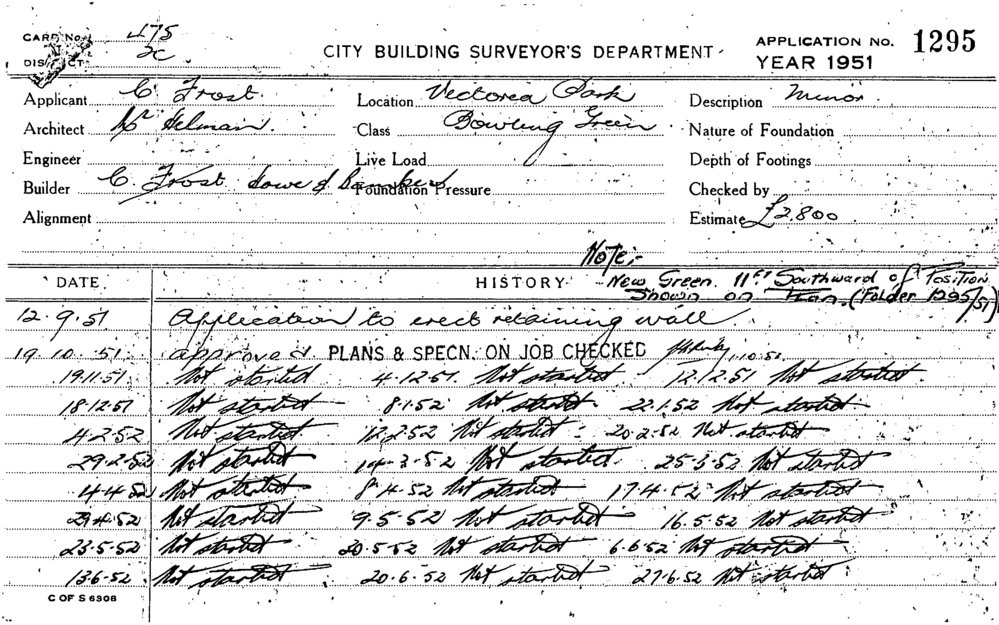 CARD No. 475
DISTRICT 2C
CITY BUILDING SURVEYOR'S DEPARTMENT
APPLICATION No. 1295
YEAR 1951
Applicant C. Frost. Location Victoria Park Description Minor.
Architect Mr Helman. Class Bowling Green Nature of Foundation
Engineer Live Load Depth of Footings
Builder C. Frost. Foundation Pressure Checked by
Alignment Estimate £2.800
Note:-
DATE HISTORY New Green. 11ft Southward of Position
Shown on Plan. (Folder 1295/51)
12.9.51 Application to erect retaining wall.
19.10.51 approved PLANS & SPECN. ON JOB CHECKED
19.11.51 Not started 4.12.51. Not started 12.12.51 Not started.
18.12.51 Not started 8.1.52 Not started. 22.1.52 Not started
4.2.52 Not started 12.2.52 Not started. 20.2.52 Not started
29.2.52 Not started 14.3.52 Not started. 25.3.52 Not started
4.4.52 Not started 8.4.52 Not started 17.4.52 Not started
29.4.52 Not started 9.5.52 Not started 16.5.52 Not started
23.5.52 Not started 30.5.52 Not started 6.6.52 Not started
13.6.52 Not started 20.6.52 Not started 27.6.52 Not started
C OF S 6308